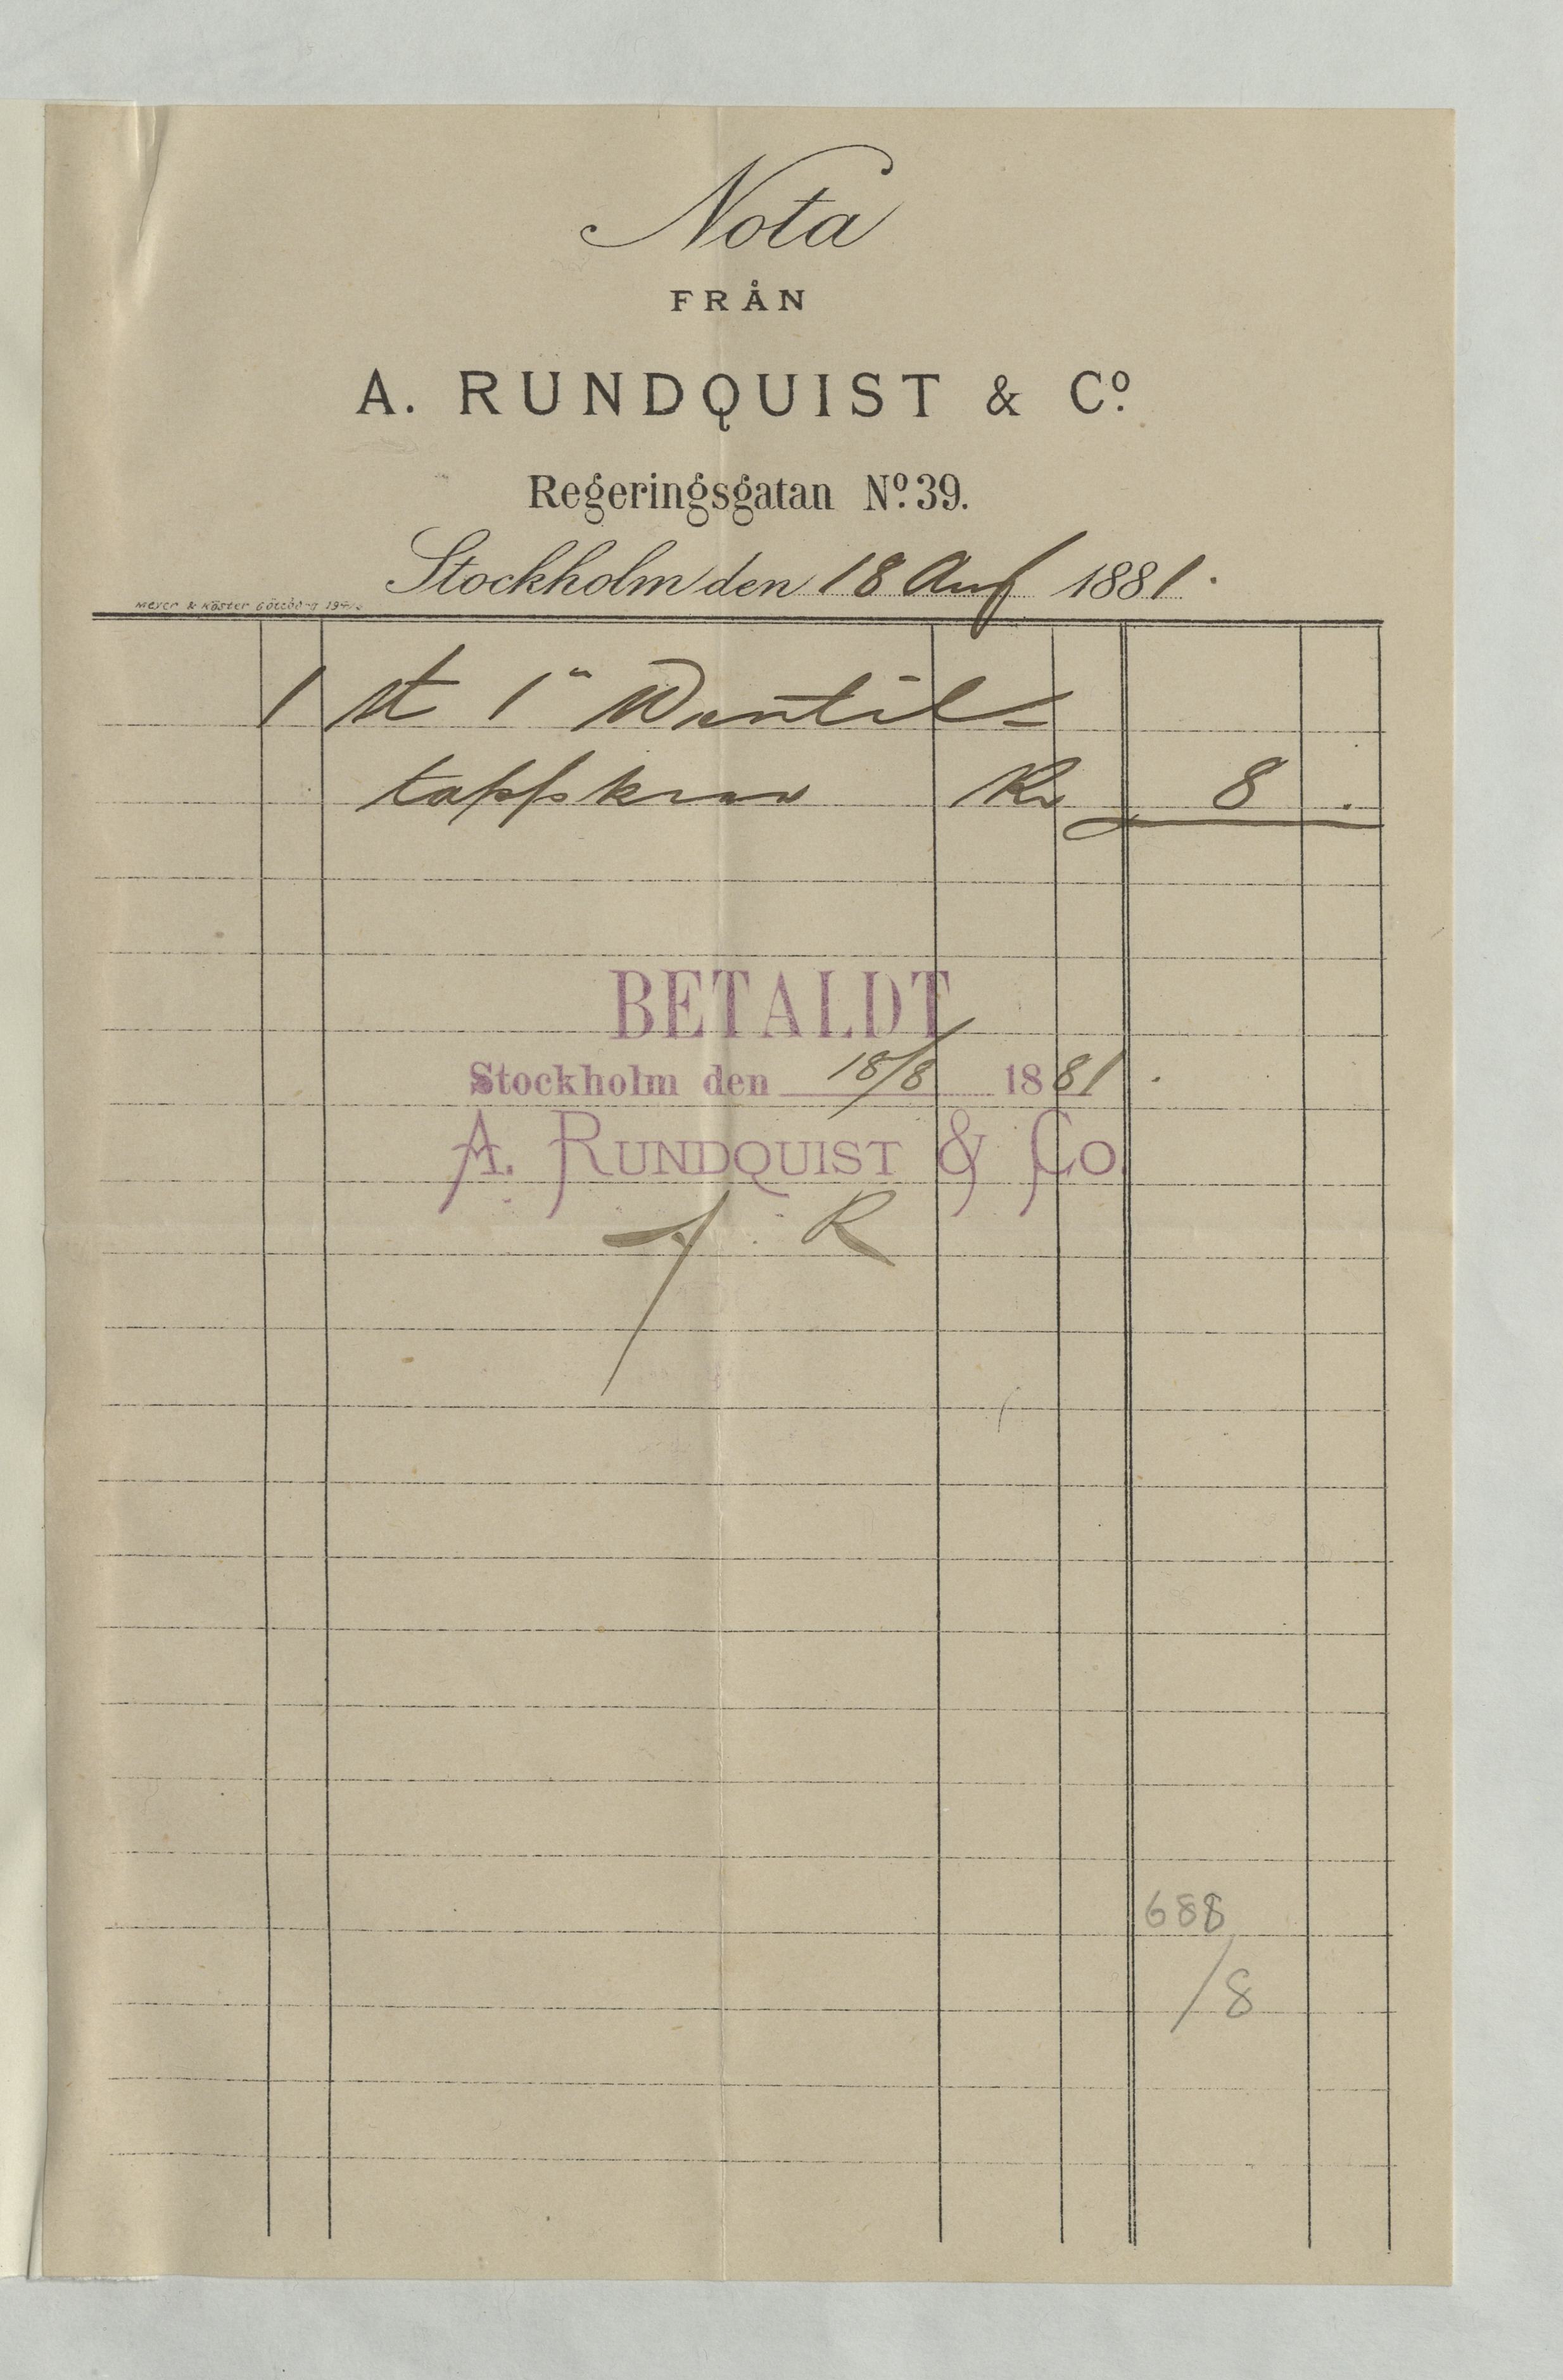 Nota
FRÅN
A. RUNDQUIST & Cº.
Regeringsgatan Nº. 39.
Stockholm den 18 Aug 1881.
Meyer & Köster Göteborg
1 st 1" Wentil-
tappskruv Kr 8 .
BETALDT
Stockholm den 18/8 1881.
A. RUNDQUIST & Co.
R
688
/8